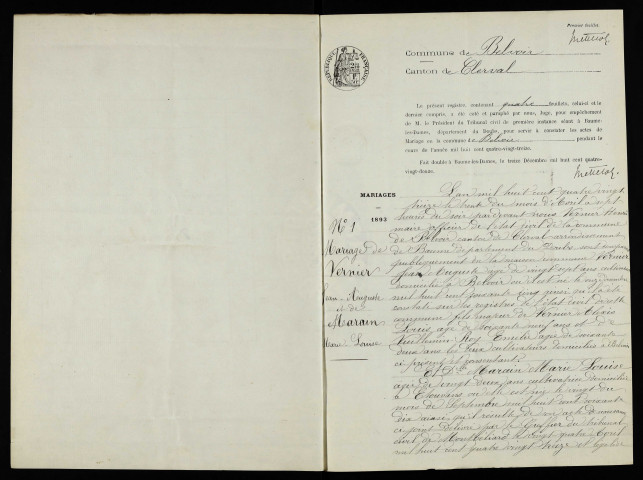 Premier feuillet
Commune de Belvoir
Canton de Clerval
RÉPUBLIQUE FRANÇAISE
Le présent registre, contenant quatre feuillets, celui-ci et le
dernier compris, a été coté et paraphé par nous, Juge, pour empêchement
de M. le Président du Tribunal civil de première instance séant à Baume-
les-Dames, département du Doubs, pour servir à constater les actes de
Mariage de la commune de Belvoir pendant le
cours de l'année mil huit cent quatre-vingt-treize.
Fait double à Baume-les-Dames, le treize Décembre mil huit cent quatre-
vingt-douze.
MARIAGES
1893
N° 1
Mariage de
Vernier
Jean-Auguste
et de
Marain
Marie Louise
L'an mil huit cent quatre vingt
treize le trente du mois d'Avril à sept
heures du soir pardevant nous Vernier
maire officier de l'état civil de la commune
de Belvoir canton de Clerval arrondissement
de Baume département du Doubs sont comparus
publiquement en la maison commune Vernier
Jean Auguste âgé de vingt sept ans cultivateur
domicilié à Belvoir où il est né le
mil huit cent soixante cinq ainsi
constaté sur les registres de l'état civil de cette
commune fils majeur de Vernier
Louis, âgé de soixante neuf ans et de
Roy âgée de soixante
deux ans les deux cultivateurs domiciliés à Belvoir
ci présents et consentants
Et Dlle Marain Marie Louise
âgée de vingt deux ans domiciliée
à où elle est née le vingt du
mois de Septembre mil huit cent soixante
dix ainsi qu'il résulte de
ci joint délivré par le Greffier du tribunal
civil de Montbéliard le vingt quatre Avril
mil huit cent quatre vingt treize et